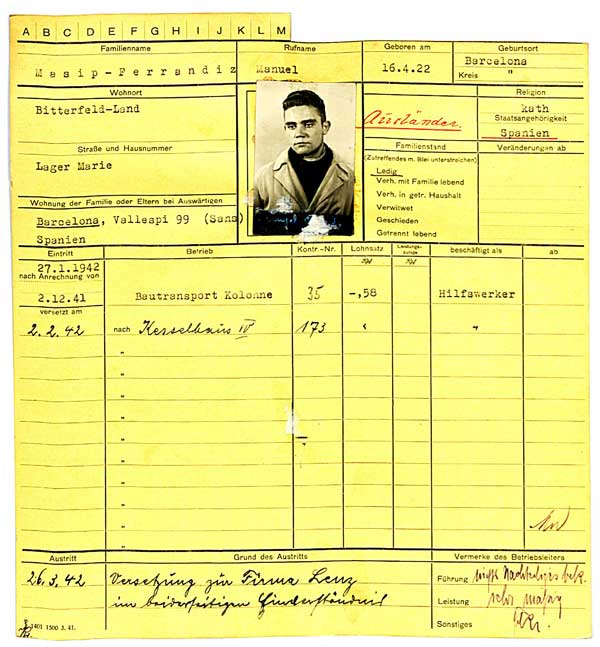 A B C D E F G H I J K L M
Familienname
Rufname
Geboren am
Geburtsort
Masip-Ferrandiz
Manuel
16.4.22
Barcelona
Kreis "
Wohnort
Religion
Bitterfeld-Land
kath
Staatsangehörigkeit
Ausländer.
Spanien
Straße und Hausnummer
Familienstand
Veränderungen ab
(Zutreffendes m. Blei unterstreichen)
Lager Marie
Ledig
Verh. mit Familie lebend
Verh. in getr. Haushalt
Wohnung der Familie oder Eltern bei Auswärtigen
Verwitwet
Barcelona, Vallespi 99 (Sans)
Geschieden
Spanien
Getrennt lebend
Eintritt
Betrieb
Kontr.-Nr.
Lohnsatz
Leistungs-zulage
beschäftigt als
ab
27.1.1942
nach Anrechnung von
2.12.41
Bautransport Kolonne
35
-,58
Hilfswerker
versetzt am
2.2.42
nach Kesselhaus IV
173
"
"
"
"
"
"
"
"
"
"
"
Austritt
Grund des Austritts
Vermerke des Betriebsleiters
26.3.42
Versetzung zur Firma Lenz
im beiderseitigen Einverständnis
Führung
Leistung
sehr mäßig
Sonstiges
1401 1500 3. 41.